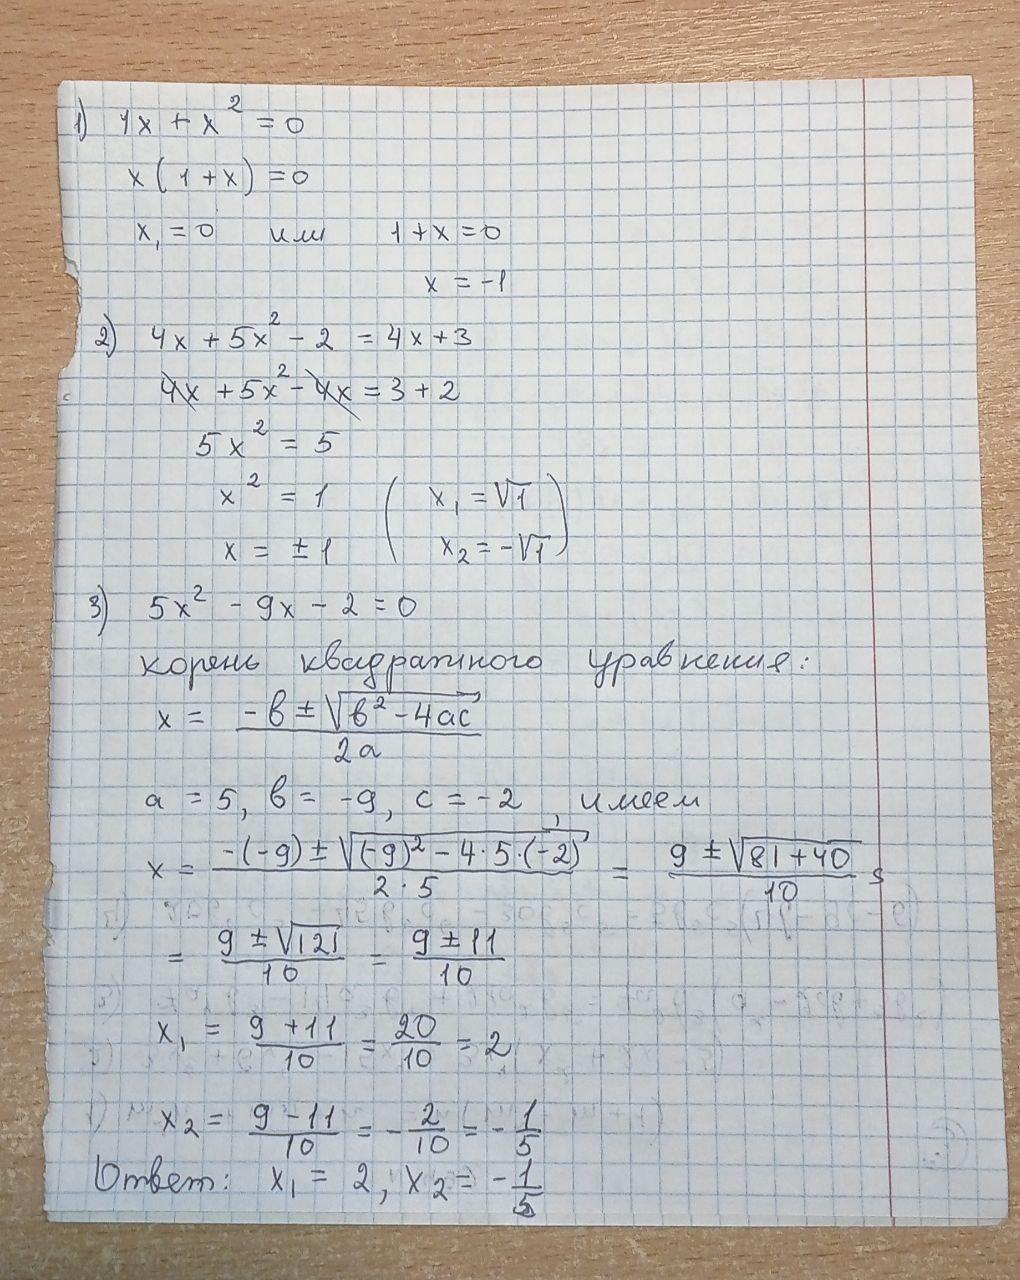 1) 1x + x² = 0
x(1+x) = 0
x₁ = 0 или 1+x = 0
x = -1
2) 4x + 5x² - 2 = 4x + 3
4x + 5x² - 4x = 3 + 2
5x² = 5
x² = 1 ( x₁ = √1
x = ±1 x₂ = -√1 )
3) 5x² - 9x - 2 = 0
корень квадратного уравнения:
x = (-в ± √(в² - 4ac)) / 2a
a = 5, в = -9, c = -2, имеем
x = (-(-9) ± √((-9)² - 4·5·(-2))) / (2·5) = (9 ± √(81+40)) / 10 =
= (9 ± √121) / 10 = (9 ± 11) / 10
x₁ = (9 + 11) / 10 = 20/10 = 2
x₂ = (9 - 11) / 10 = -2/10 = -1/5
Ответ: x₁ = 2, x₂ = -1/5